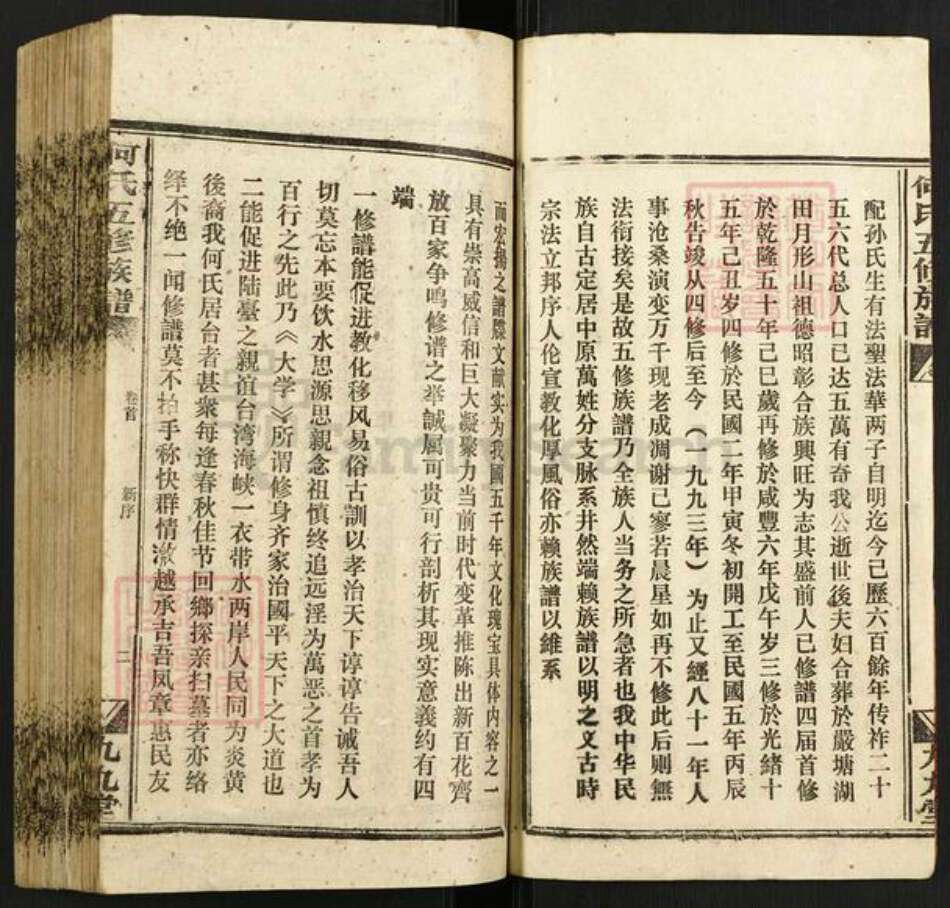 何氏五修族譜
配孙氏生有法聖法華两子自明迄今己歷六百餘年传祚二十
五六代总人口已达五萬有奇我公逝世後夫妇合葬於嚴塘湖
田月形山祖德昭彰合族興旺为志其盛前人已修譜四届首修
於乾隆五十年己巳歲再修於咸豐六年戊午岁三修於光緒十
五年己丑岁四修於民國二年甲寅冬初開工至民國五年丙辰
秋告竣从四修后至今(一九九三年)为止又經八十一年人
事沧桑演变万千现老成凋谢已寥若晨星如再不修此后则無
法衔接矣是故五修族譜乃全族人当务之所急者也我中华民
族自古定居中原萬姓分支脉系井然端赖族譜以明之文古時
宗法立邦序人伦宣教化厚風俗亦赖族譜以维系
九九堂
而宏揚之譜牒文献实为我國五千年文化瑰宝具体内容之一
具有崇高威信和巨大凝聚力当前时代变革推陈出新百花齊
放百家争鸣修谱之举誠属可贵可行剖析其现实意義约有四
端
一修譜能促进教化移风易俗古訓以孝治天下谆谆告诫吾人
切莫忘本要饮水思源思親念祖慎终追远淫为萬恶之首孝为
百行之先此乃《大学》所谓修身齐家治國平天下之大道也
二能促进陆臺之親誼台湾海峡一衣带水两岸人民同为炎黄
後裔我何氏居台者甚衆每逢春秋佳节回鄉探亲扫墓者亦络
绎不绝一聞修譜莫不拍手称快群情激越承吉吾凤章惠民友
何氏五修族譜
卷首
新序
二
九九堂
FamilySearch